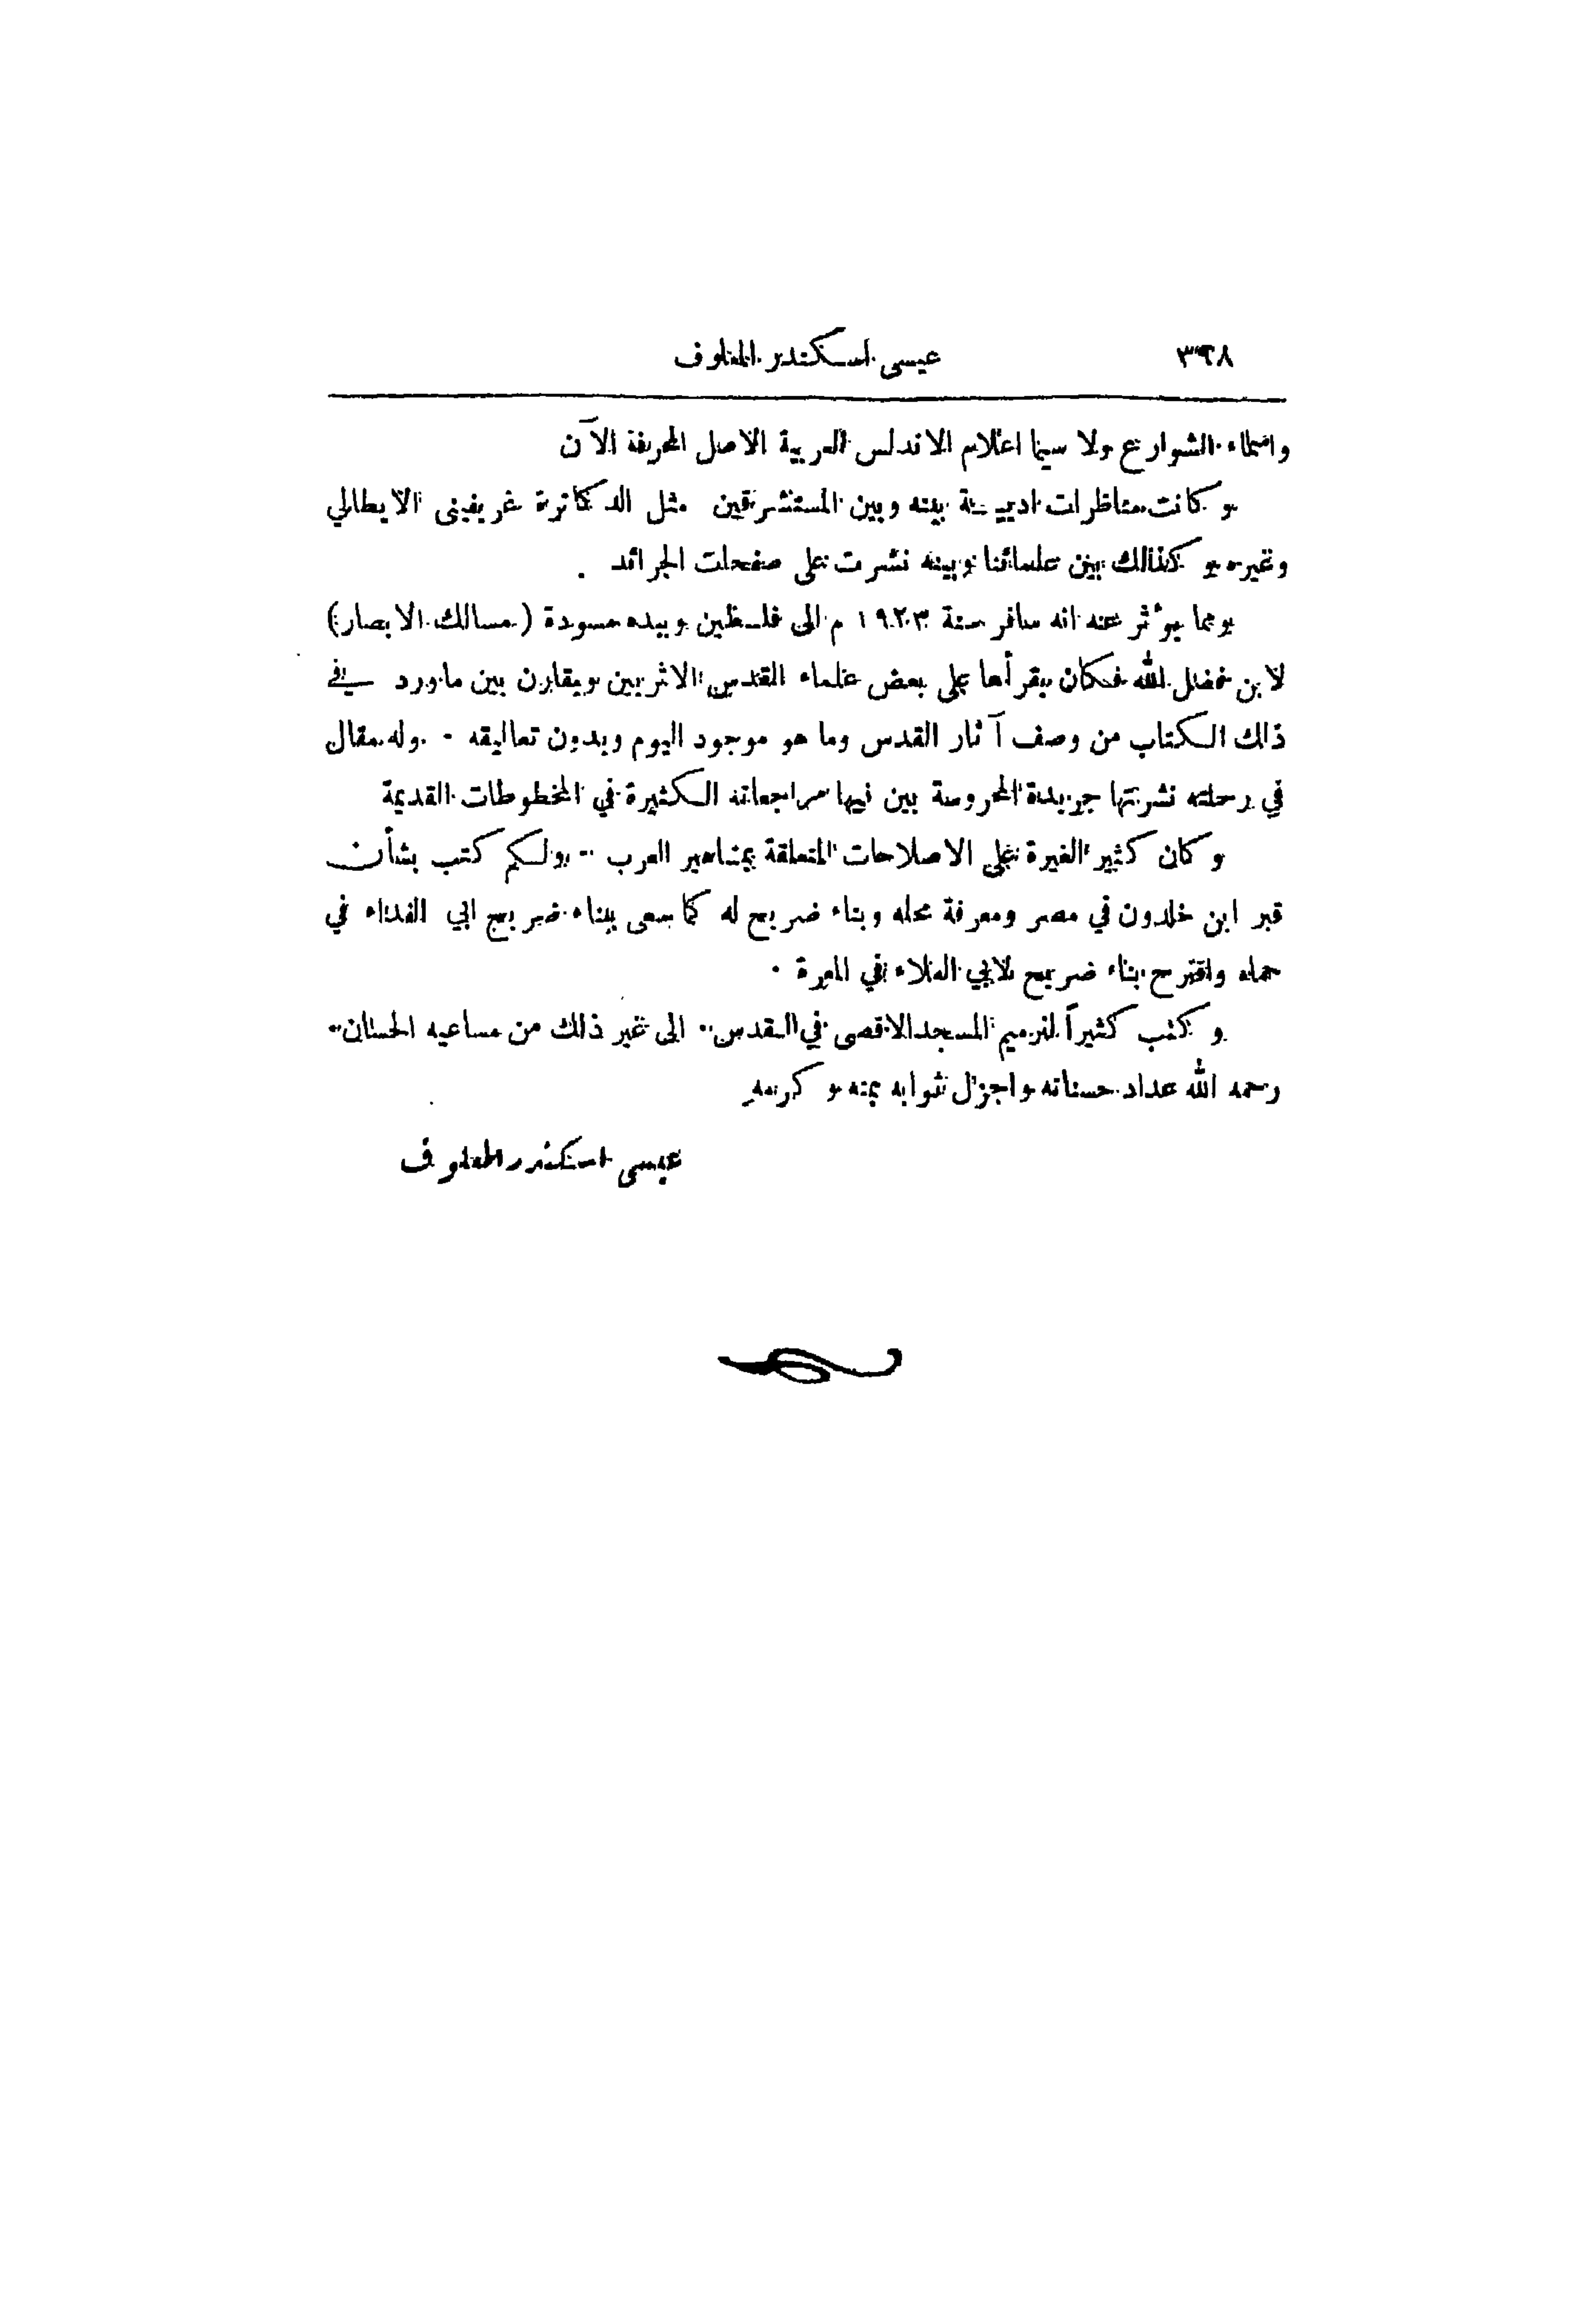 ٣٩٨ عيسى اسكندر المعلوف
واسماء الشوارع ولا سيما اعلام الاندلس العربية الاصل المحرفة الآن
وكانت مناظرات ادبيــة بينه وبين المستشرقين مثل الدكاترة غريفيني الايطالي
وغيره وكذلك بين علمائنا وبينه نشرت على صفحات الجرائد .
ومما يؤثر عنه انه سافر سنة ١٩٢٣ م الى فلسطين وبيده مسودة (مسالك الابصار)
لابن فضل الله فكان يقرأها على بعض علماء القدس الاثريين ويقارن بين ما ورد في
ذلك الكتاب من وصف آثار القدس وما هو موجود اليوم ويدون تعاليقه . وله مقال
في رحلته نشرتها جريدة المحروسة بين فيها مراجعاته الكثيرة في المخطوطات القديمة
وكان كثير الغيرة على الاصلاحات المتعلقة بمشاهير العرب .. ولكم كتب بشأن
قبر ابن خلدون في مصر ومعرفة محله وبناء ضريح له كما سعى ببناء ضريح ابي الفداء في
حماه واقترح بناء ضريح لابي العلاء في المعرة .
وكتب كثيراً لترميم المسجد الاقصى في القدس .. الى غير ذلك من مساعيه الحسان ..
رحمه الله عداد حسناته واجزل ثوابه بمنه وكرمه
عيسى اسكندر المعلوف